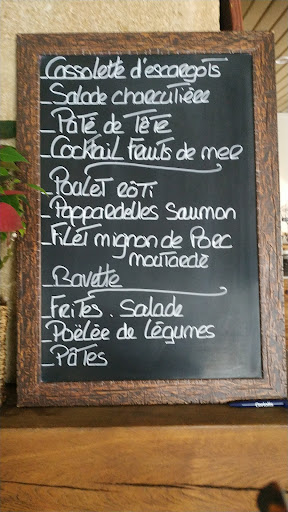 _Cassolette d'escargots
_Salade charcutière
_Pâté de Tête
_Cocktail fruits de mer
_Poulet rôti
_Pappardelles Saumon
_Filet mignon de Porc
moutarde
_Bavette
_Frites. Salade
_Poëlée de légumes
_Pâtes